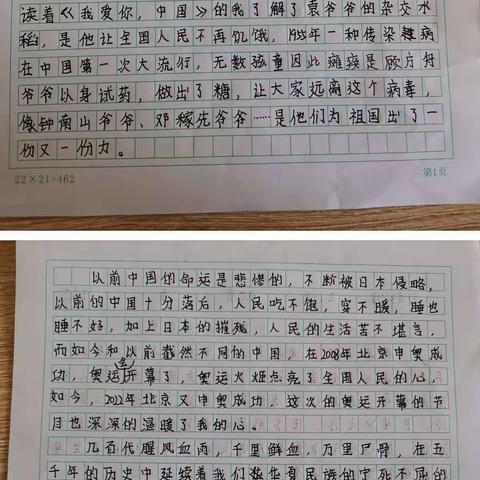 读着《我爱你,中国》的我了解了袁爷爷的杂交水
稻,是他让全国人民不再饥饿,1955年一种传染病
在中国第一次大流行,无数孩童因此瘫痪是欧片付
爷爷以身试药,做出了糖,让大家远离这个病毒,
像钟南山爷爷、邓稼先爷爷……是他们为祖国出了一
份又一份力。
22×21=462
第1页
以前中国的命运是悲惨的,不断被日本侵略,
以前的中国十分落后,人民吃不饱,穿不暖,睡也
睡不好,加上日本的摧残,人民的生活苦不堪言,
而如今和以前截然不同的中国,在2008年北京申奥成
功,奥运会开幕了,奥运火炬点亮了全国人民的心,
如今,2022年北京又申奥成功,这次的奥运开幕的节
目也深深的温暖了我的心。
几百代腥风血雨,千里鲜血,万里尸骨,在五
千年的历史中延续着我们华夏民族的宁死不屈的